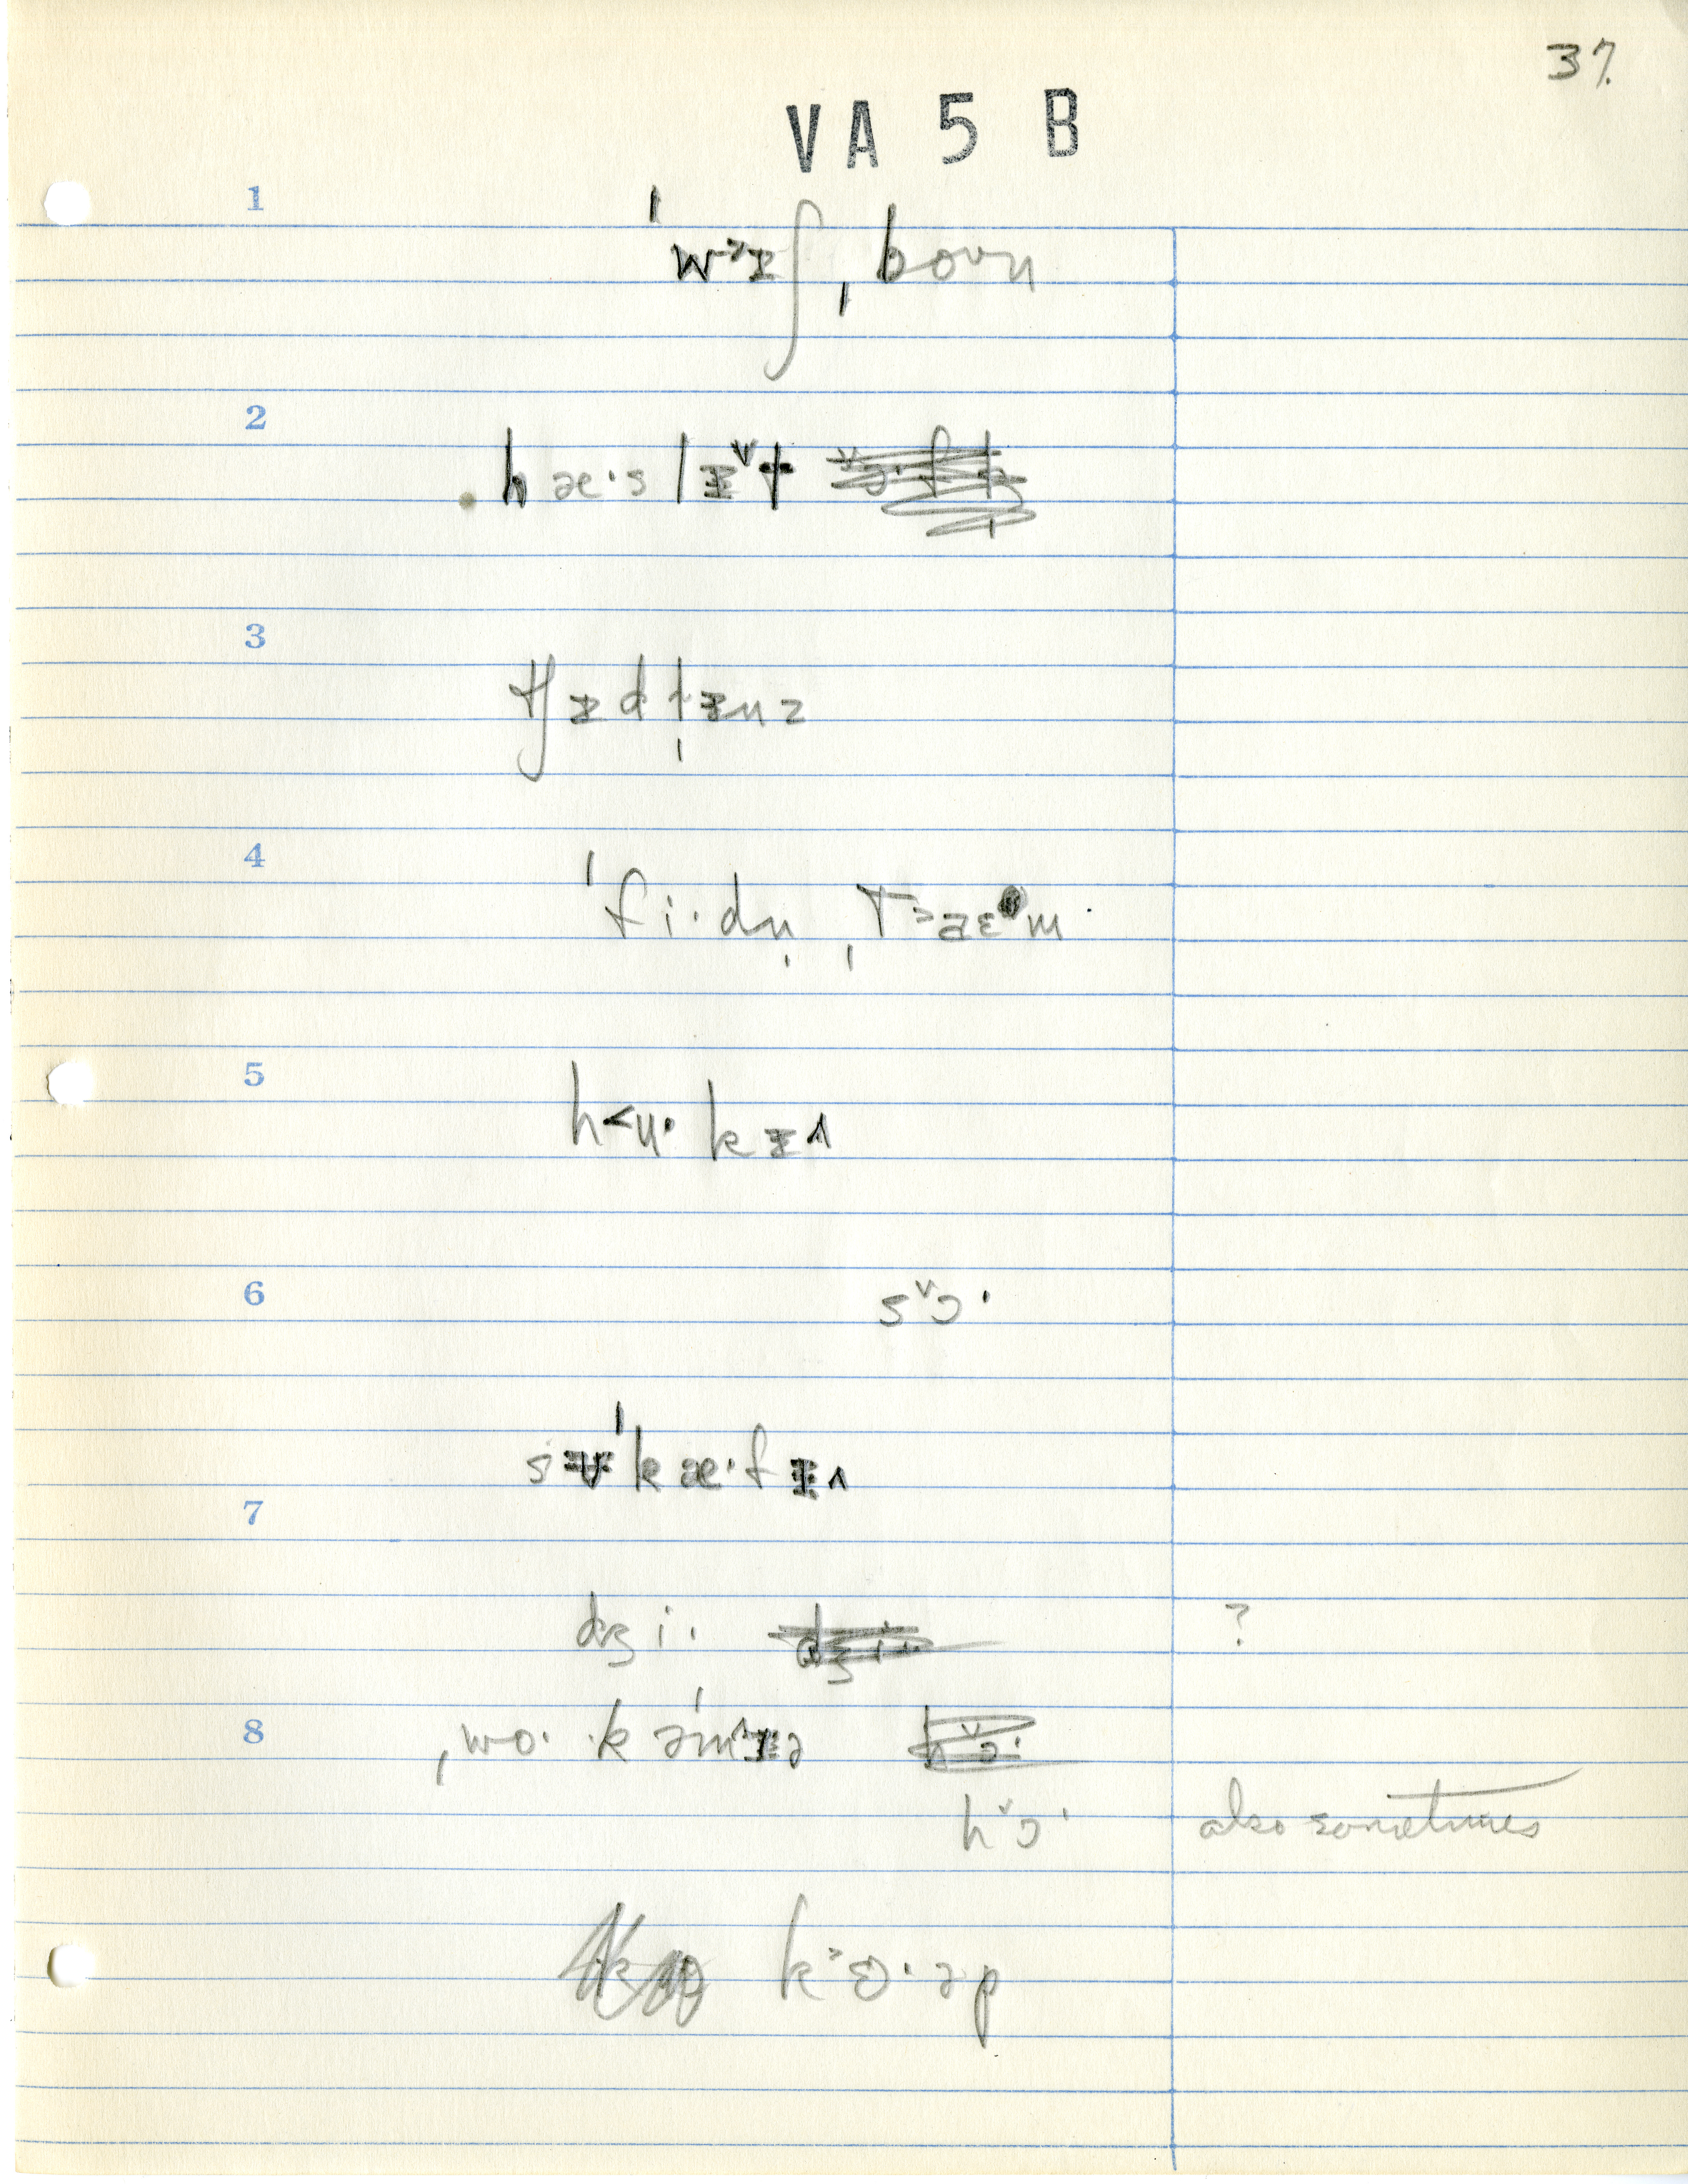 37.
VA 5 B
1
ˈwɜɪʃ ˌboʊn
2
hæ·s lɪ˅t
3
tʃɪdlɪnz
4
ˈfi·dn̩ ˌT>aɛm
5
h<u· kɪ^
6
s˅ɔ·
sɪ˅ˈkæ·fɪ^
7
dʒi· ?
8 ˌwo· kəˈm^ɪə
h˅ɔ· also sometimes
k>ɵ·əp